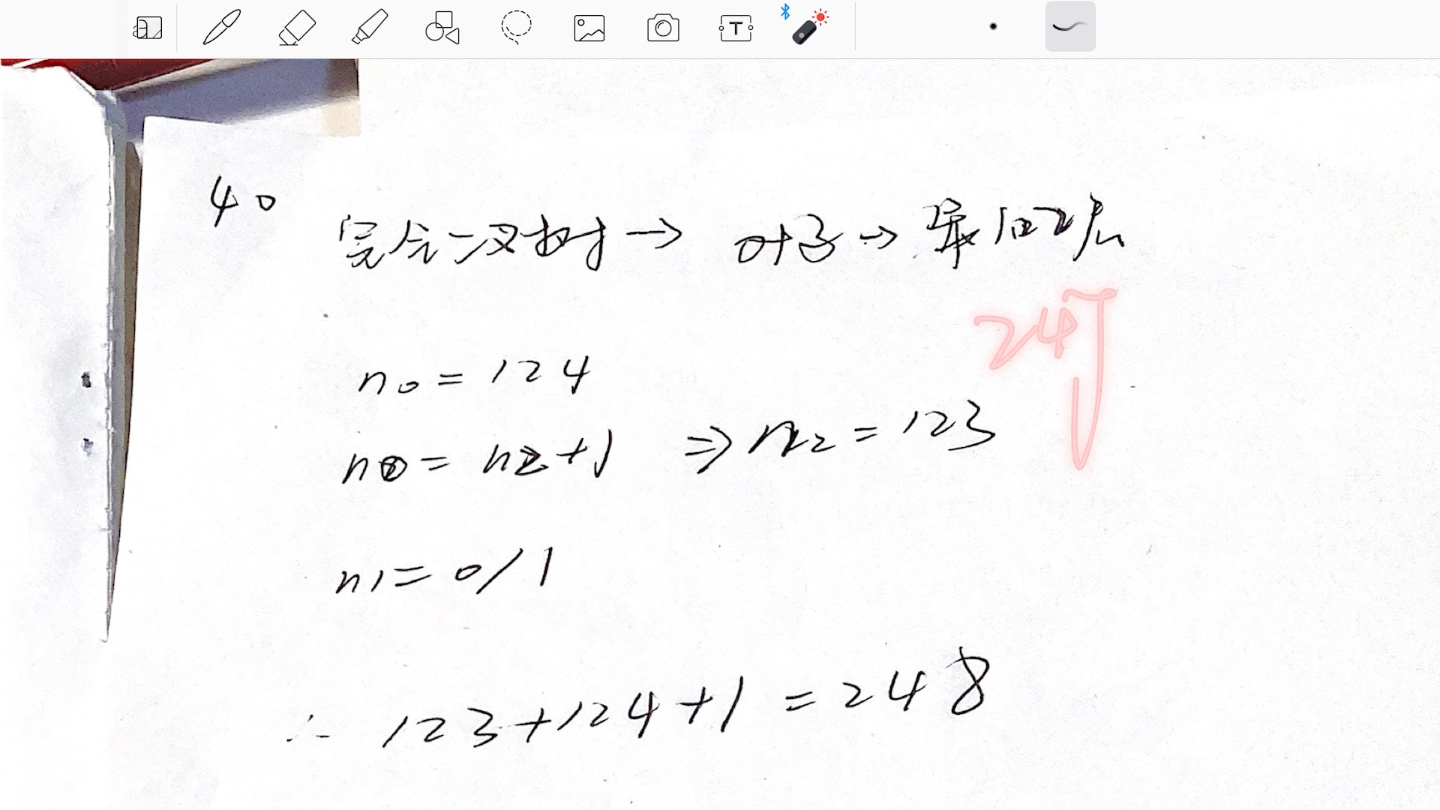 40
完全二叉树→ 叶子→最后2层
24
n0=124
n0=n2+1 ⇒n2=123
n1=0/1
∴ 123+124+1=248